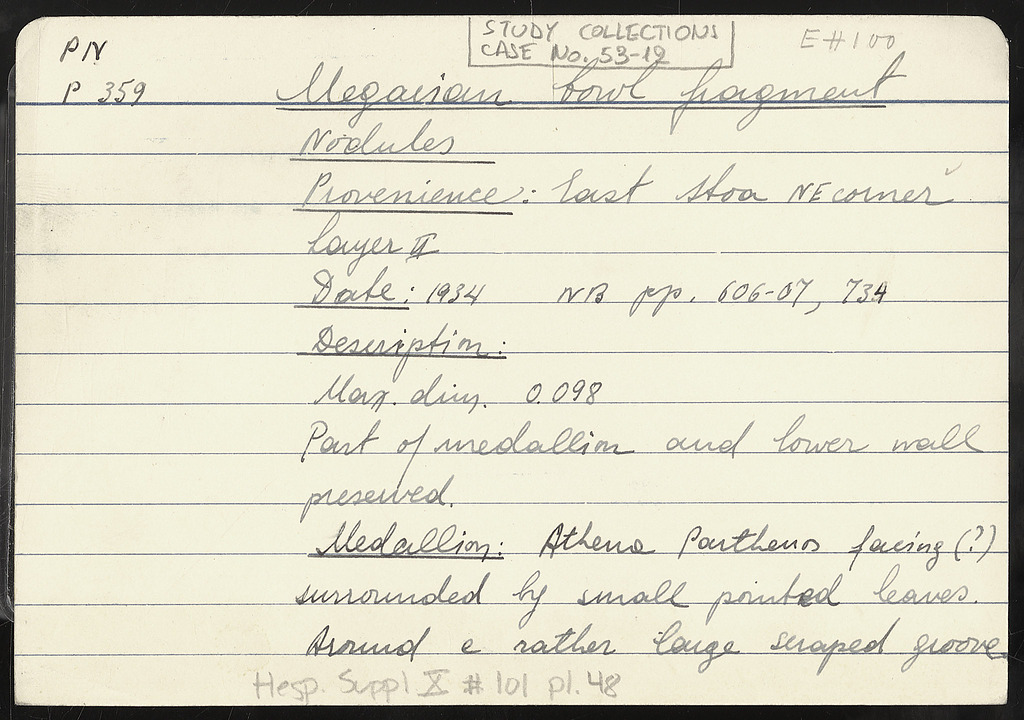 STUDY COLLECTIONS
CASE No. 53-12
E#100
PN
P 359
Megarian bowl fragment
Nodules
Provenience: East Stoa NE corner
Layer II
Date: 1934 NB pp. 606-07, 734
Description:
Max. dim. 0.098
Part of medallion and lower wall
preserved.
Medallion: Athena Parthenos facing (?)
surrounded by small pointed leaves.
Around a rather large scraped groove.
Hesp. Suppl X # 101 pl. 48